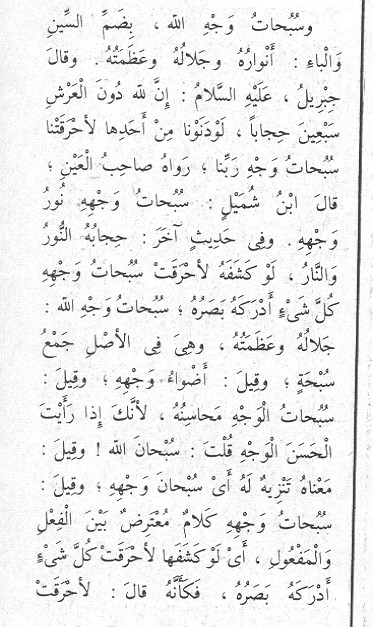 وسُبُحاتُ وَجْهِ اللّه ، بِضَمِّ السِّينِ
وَالْباءِ : أَنْوارُهُ وَجَلالُهُ وعَظَمَتُهُ . وقالَ
جِبْرِيلُ ، عَلَيْهِ السَّلامُ : إِنَّ لِلّهِ دُونَ الْعَرْشِ
سَبْعِينَ حِجاباً ، لَوْدَنَوْنا مِنْ أَحَدِها لأَحْرَقَتْنا
سُبُحاتُ وَجْهِ رَبِّنا ؛ رَواهُ صاحِبُ الْعَيْنِ ؛
قالَ ابْنُ شُمَيْلٍ : سُبُحاتُ وَجْهِهِ نُورُ
وَجْهِهِ . وفِى حَدِيثٍ آخَرَ : حِجابُهُ النُّورُ
وَالنَّارُ ، لَوْ كَشَفَهُ لأَحْرَقَتْ سُبُحاتُ وَجْهِهِ
كُلَّ شَىْءٍ أَدْرَكَهُ بَصَرُهُ ؛ سُبُحاتُ وَجْهِ اللّه :
جَلالُهُ وعَظَمَتُهُ ، وهِىَ فِى الأَصْلِ جَمْعُ
سُبْحَةٍ ؛ وقِيلَ : أَضْواءُ وَجْهِهِ ؛ وقِيلَ :
سُبُحاتُ الْوَجْهِ مَحاسِنُهُ ، لأَنَّكَ إِذا رَأَيْتَ
الْحَسَنَ الْوَجْهِ قُلْتَ : سُبْحانَ اللّه ! وقِيلَ :
مَعْناهُ تَنْزِيهٌ لَهُ أَىْ سُبْحانَ وَجْهِهِ ؛ وقِيلَ :
سُبُحاتُ وَجْهِهِ كَلامٌ مُعْتَرِضٌ بَيْنَ الْفِعْلِ
وَالْمَفْعُولِ ، أَىْ لَوْ كَشَفَها لأَحْرَقَتْ كُلَّ شَىْءٍ
أَدْرَكَهُ بَصَرُهُ ، فَكَأَنَّهُ قالَ : لأَحْرَقَتْ